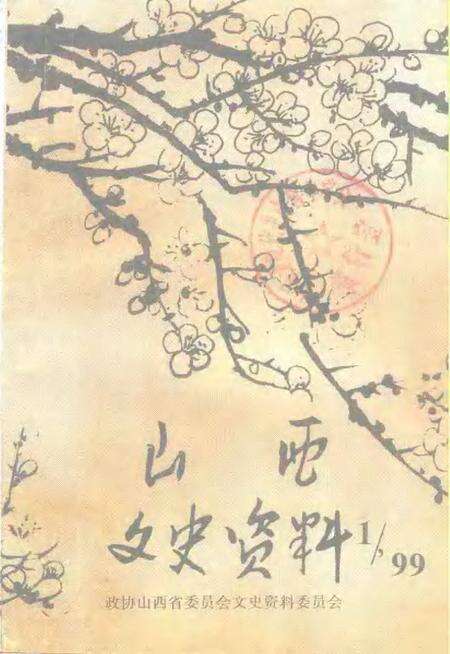 山西
文史资料
1/,99
政协山西省委员会文史资料委员会